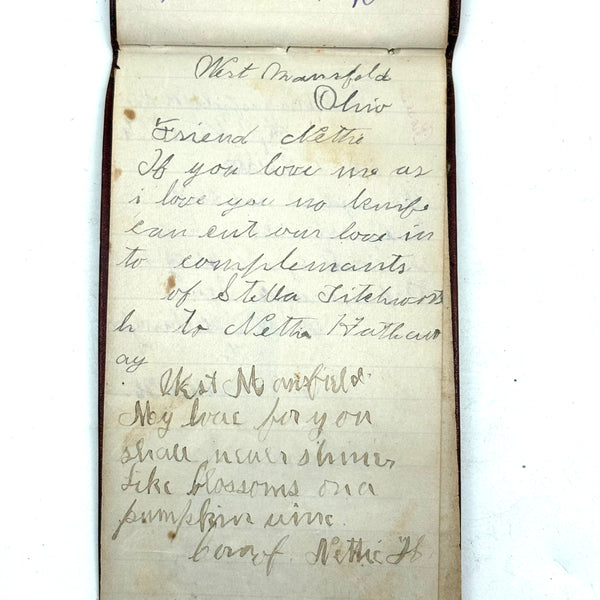 West Mansfeld
Ohio
Friend Nettie
If you love me as
i love you no knife
can cut our love in
to complemants
of Stella Titchwort
h to Nettie Hathaw
ay.
West Mansfield.
My love for you
shall never
Like blossoms on a
pumpkin vine.
of Nettie H